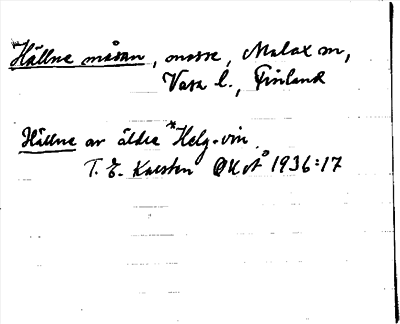 Hällne måsan, mosse, Malax sn,
Vasa l., Finland
Hällne av äldre *Helg-vin
T. E. Karsten 1936:17